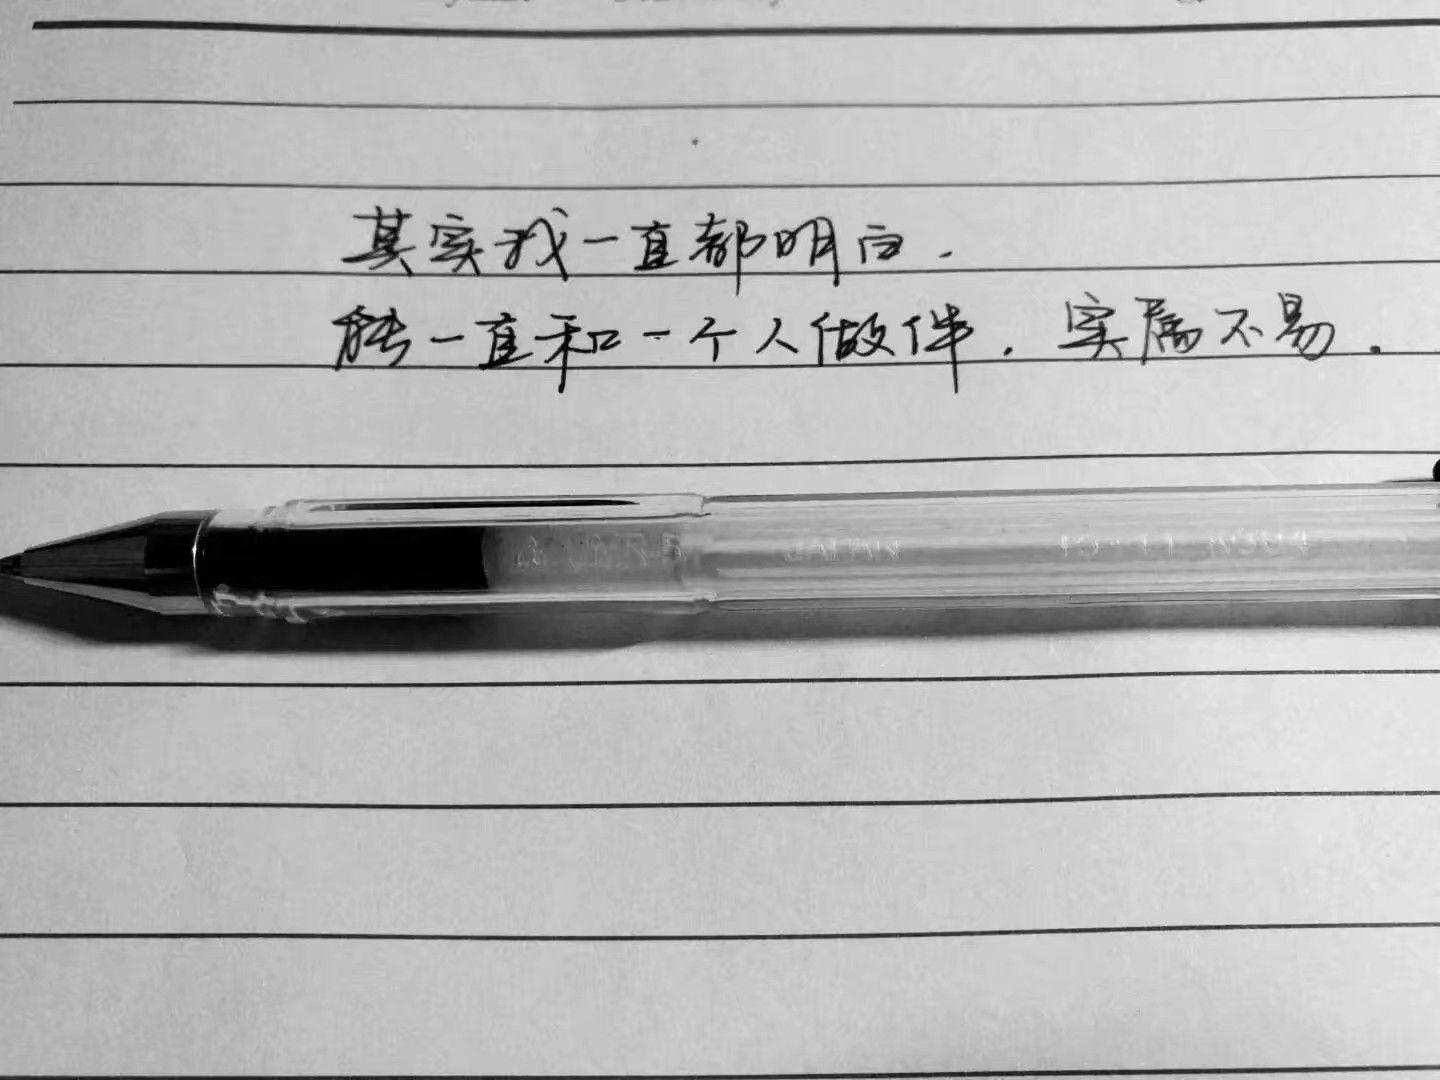 其实我一直都明白.
能一直和一个人做伴.实属不易.
JAPAN